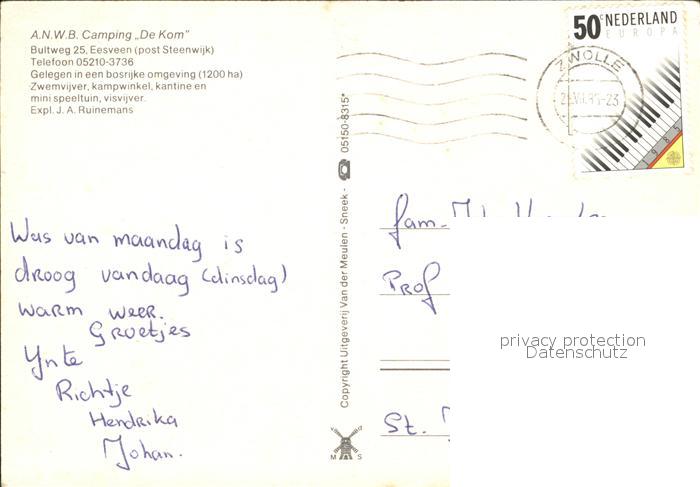 A.N.W.B. Camping „De Kom"
Bultweg 25, Eesveen (post Steenwijk)
Telefoon 05210-3736
Gelegen in een bosrijke omgeving (1200 ha)
Zwemvijver, kampwinkel, kantine en
mini speeltuin, visvijver.
Expl. J. A. Ruinemans
Was van maandag is
droog vandaag (dinsdag)
warm weer.
Groetjes
Ynte
Richtje
Hendrika
Johan.
Copyright Uitgeverij Van der Meulen - Sneek - 05150-8315*
M S
50c NEDERLAND
EUROPA
1985
ZWOLLE
fam.
Prof
St.
privacy protection
Datenschutz